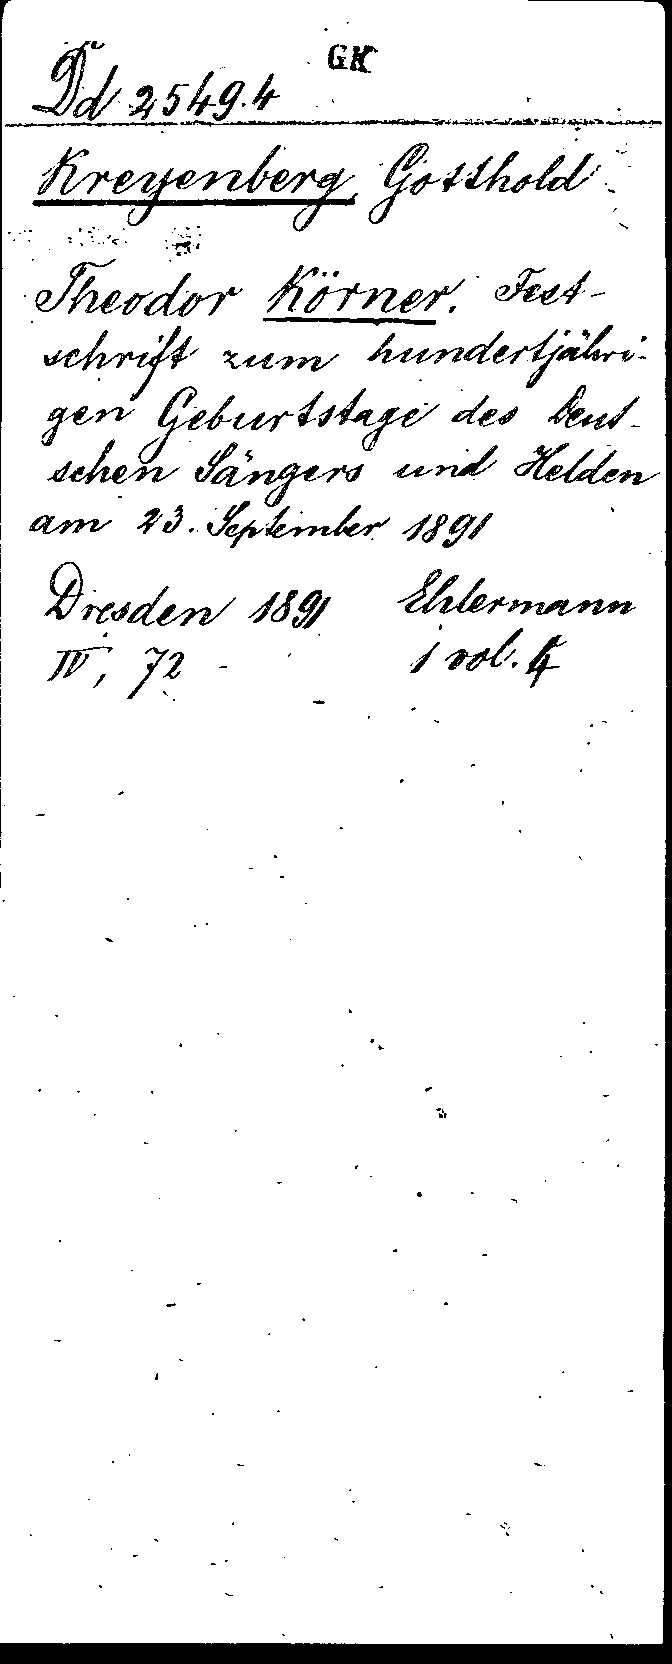 GK
Dd 2549.4
Kreyenberg, Gotthold
Theodor Körner. Fest-
schrift zum hundertjähri-
gen Geburtstage des Deut-
schen Sängers und Helden
am 23. September 1891
Dresden 1891 Ehlermann
IV, 72 1 vol. 4